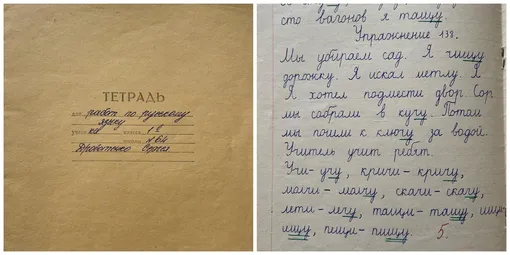 ТЕТРАДЬ
для работ по русскому
языку
учени ка класса 1
школы 64
Сергея
сто вагонов я тащу.
Упражнение 138.
Мы убираем сад. Я чищу
дорожку. Я искал метлу. Я
Я хотел подмести двор Сор
мы собрали в кучу. Потом
мы пошли к ключу за водой.
Учитель учит ребят.
Учи - учу, кричи - кричу,
молчи - молчу, скачи - скачу,
лети - лечу, тащи - тащу, ищи
ищу, пищи - пищу. 5.